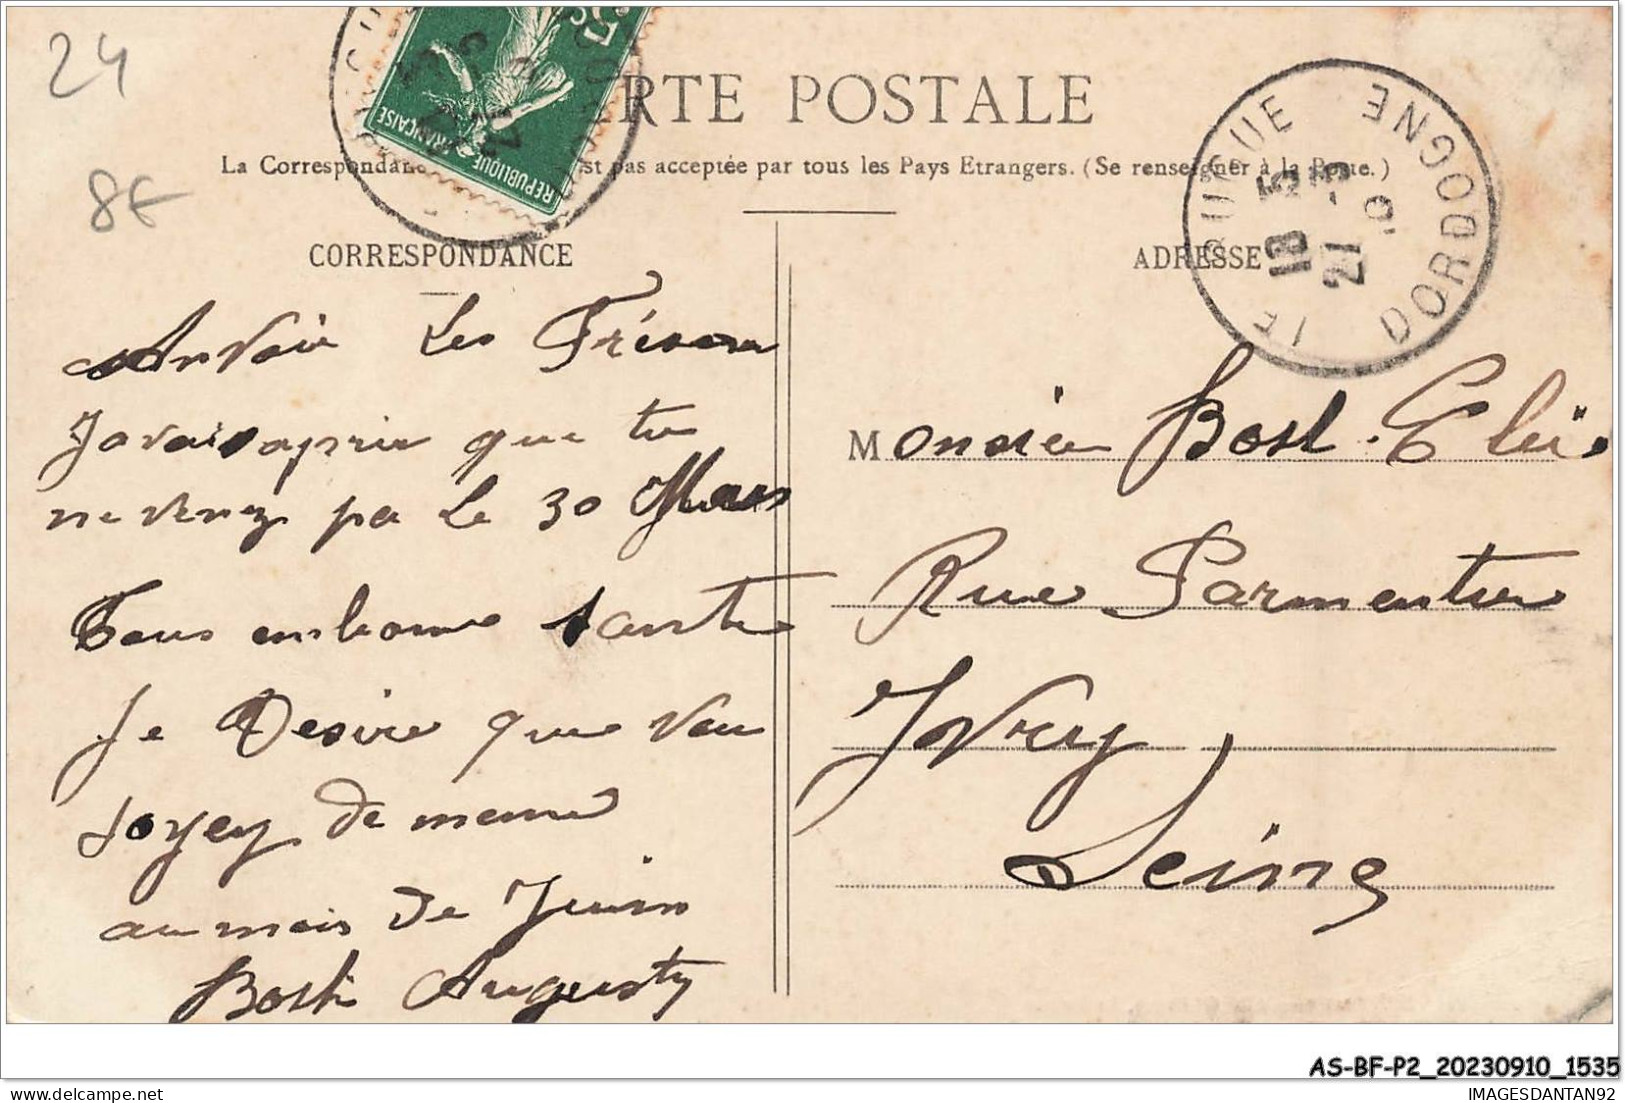 24
8€
RTE POSTALE
La Correspondan st pas acceptée par tous les Pays Etrangers. (Se renseigner à la Poste.)
RÉPUBLIQUE FRANÇAISE
5c
DORDOGNE
18 5
21 -3
CORRESPONDANCE
ADRESSE
les
Javais apris que tu
ne venez pa le 30 Mars
Tous en bonne sante
Je Desire que vou
soyey de meme
au mois De Juin
Bost Auguste
Monsieu Bost Elie
Rue Parmentier
Ivry
Seine
AS-BF-P2_20230910_1535
IMAGESDANTAN92